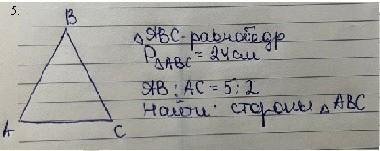 5.
B
A
C
△ABC - равнобедр
P△ABC = 24 см
AB : AC = 5 : 2
Найти: стороны △ABC